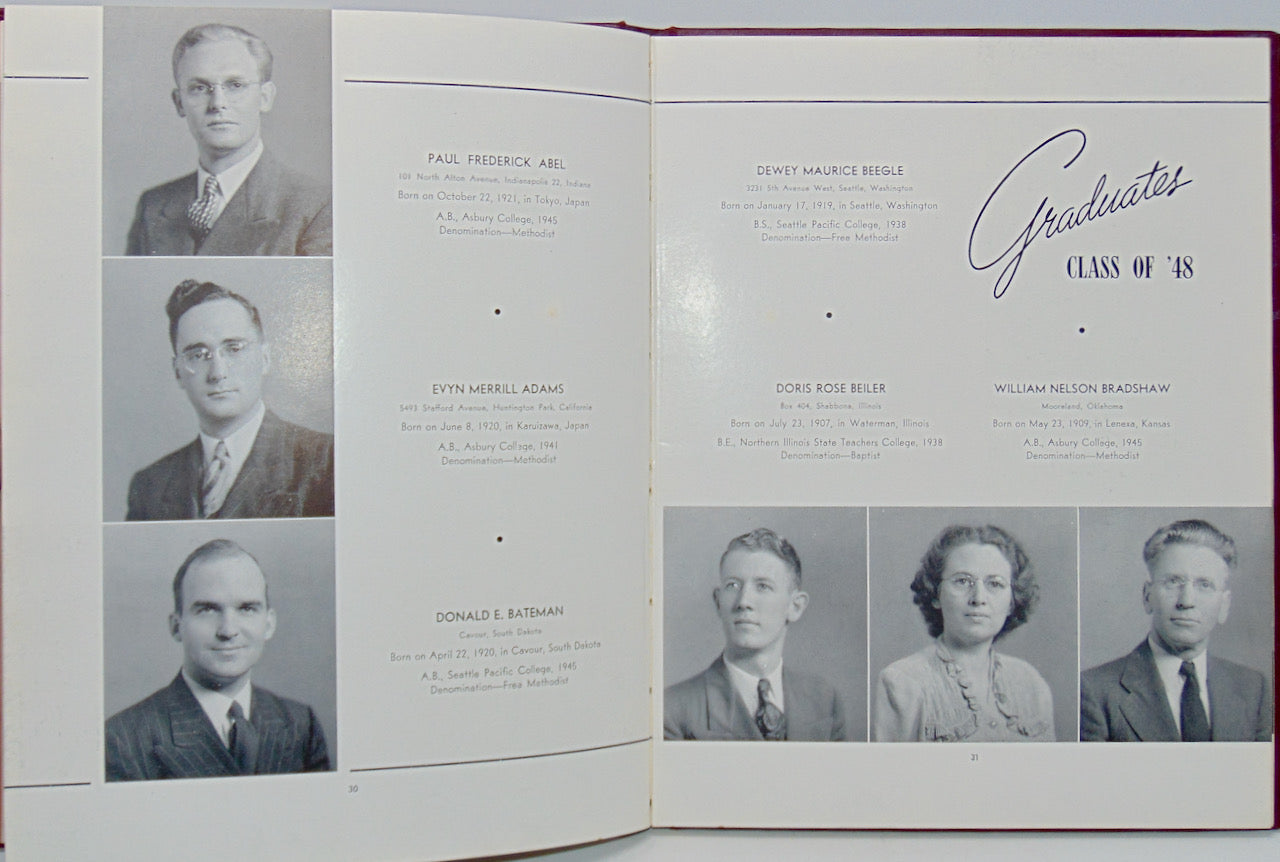 PAUL FREDERICK ABEL
101 North Alton Avenue, Indianapolis 22, Indiana
Born on October 22, 1921, in Tokyo, Japan
A.B., Asbury College, 1945
Denomination—Methodist
EVYN MERRILL ADAMS
5493 Stafford Avenue, Huntington Park, California
Born on June 8, 1920, in Karuizawa, Japan
A.B., Asbury College, 1941
Denomination—Methodist
DONALD E. BATEMAN
Cavour, South Dakota
Born on April 22, 1920, in Cavour, South Dakota
A.B., Seattle Pacific College, 1945
Denomination—Free Methodist
30
Graduates
CLASS OF '48
DEWEY MAURICE BEEGLE
3231 5th Avenue West, Seattle, Washington
Born on January 17, 1919, in Seattle, Washington
B.S., Seattle Pacific College, 1938
Denomination—Free Methodist
DORIS ROSE BEILER
Box 404, Shabbona, Illinois
Born on July 23, 1907, in Waterman, Illinois
B.E., Northern Illinois State Teachers College, 1938
Denomination—Baptist
WILLIAM NELSON BRADSHAW
Mooreland, Oklahoma
Born on May 23, 1909, in Lenexa, Kansas
A.B., Asbury College, 1945
Denomination—Methodist
31